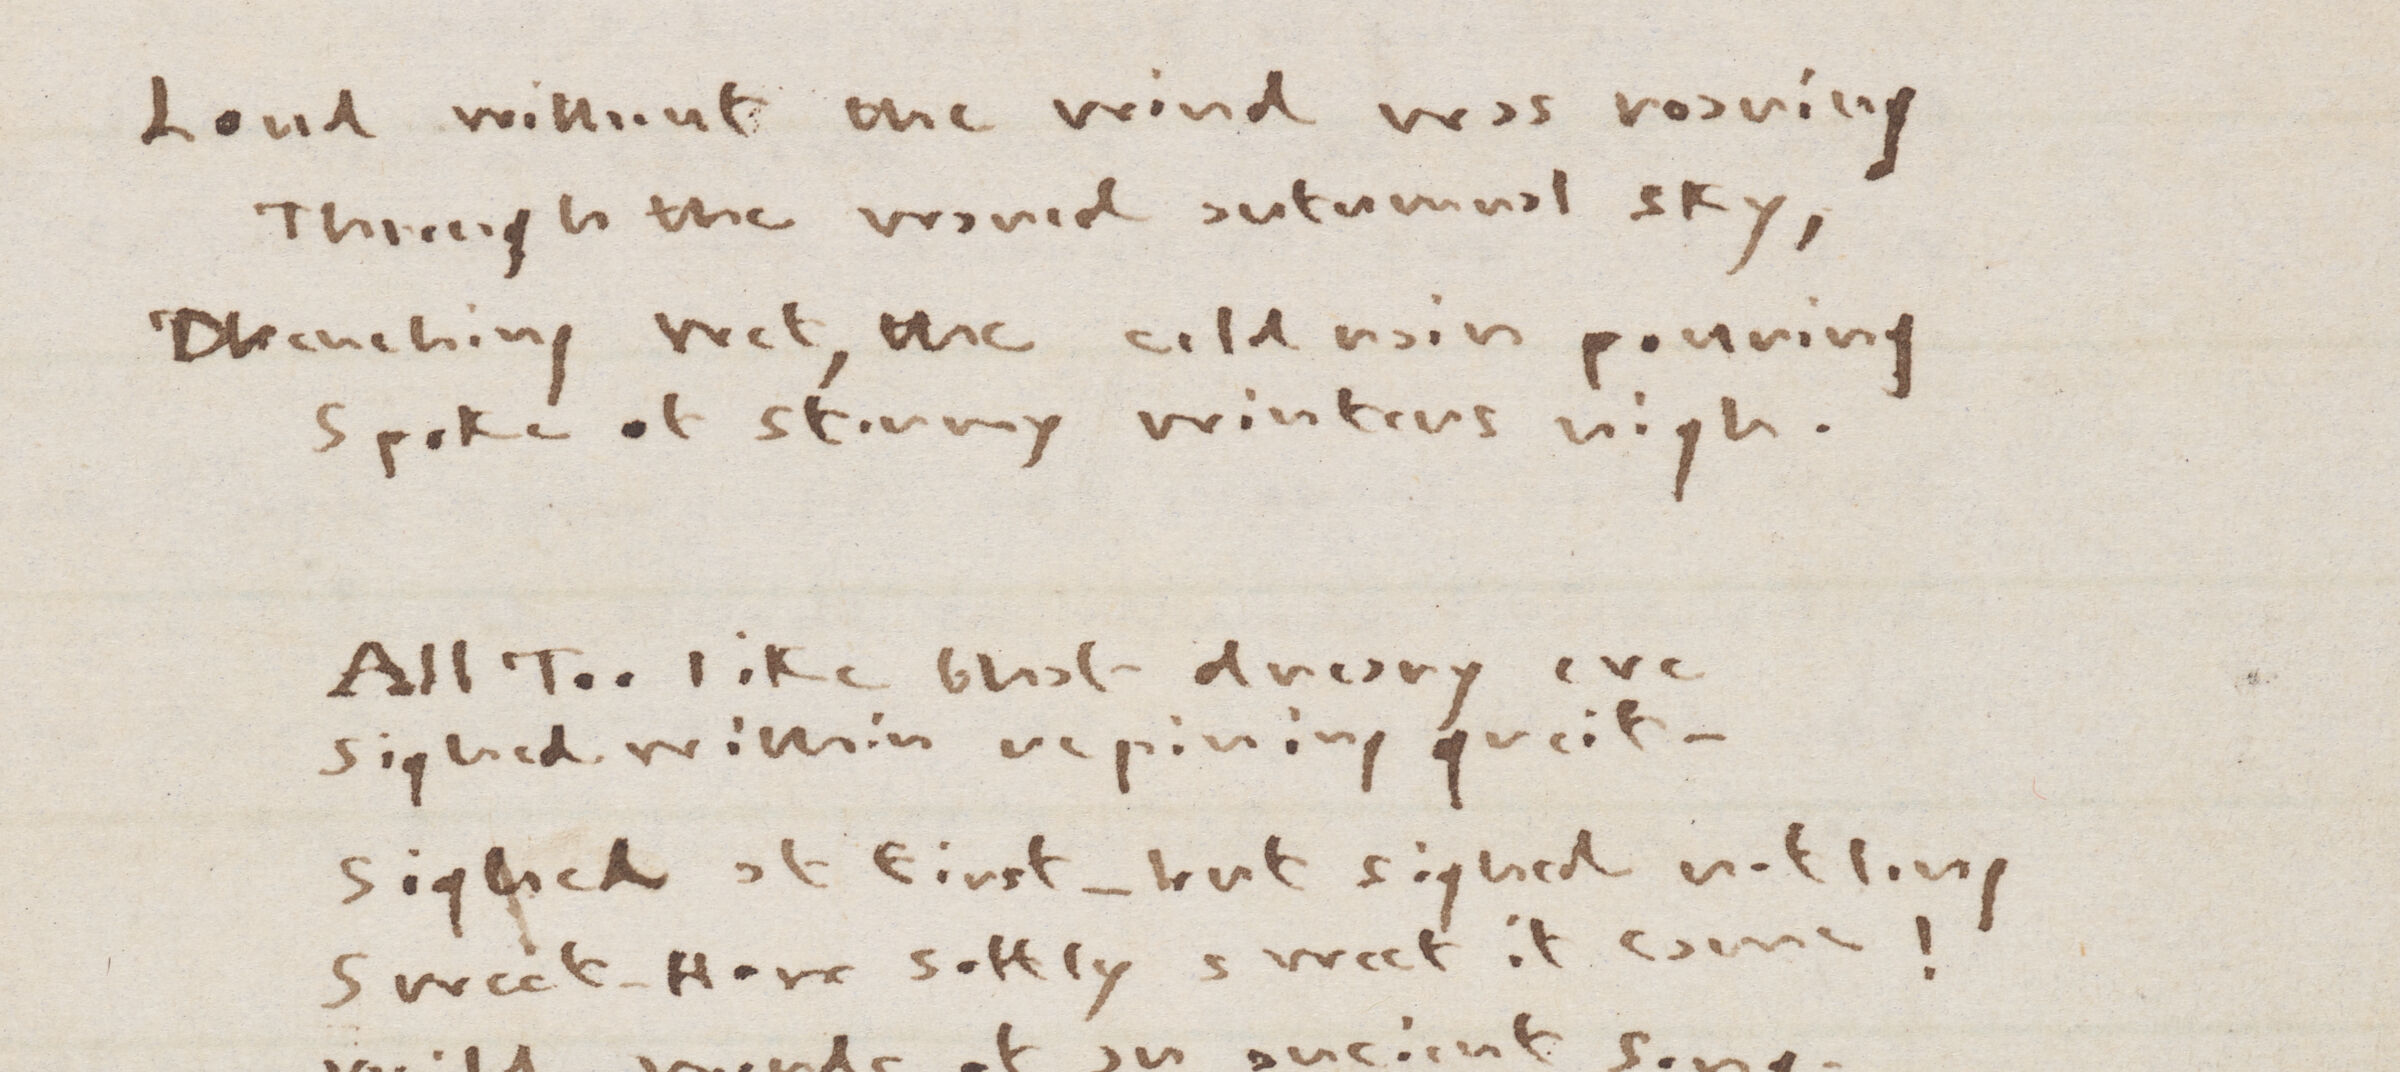 Loud without the wind was roaring
Through the waned autumnal sky,
Drenching wet, the cold rain pouring
Spoke of stormy winters nigh.
All Too like that dreary eve
Sighed within repining greif-
Sighed at first - but sighed not long
Sweet - How softly sweet it came!
Wild words of an ancient song